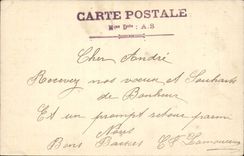 CARTE POSTALE
Cher André
Recevez nos vœux et Souhaits
de Bonheur
Et un prompt retour parmi
Nous
Bons Baisers